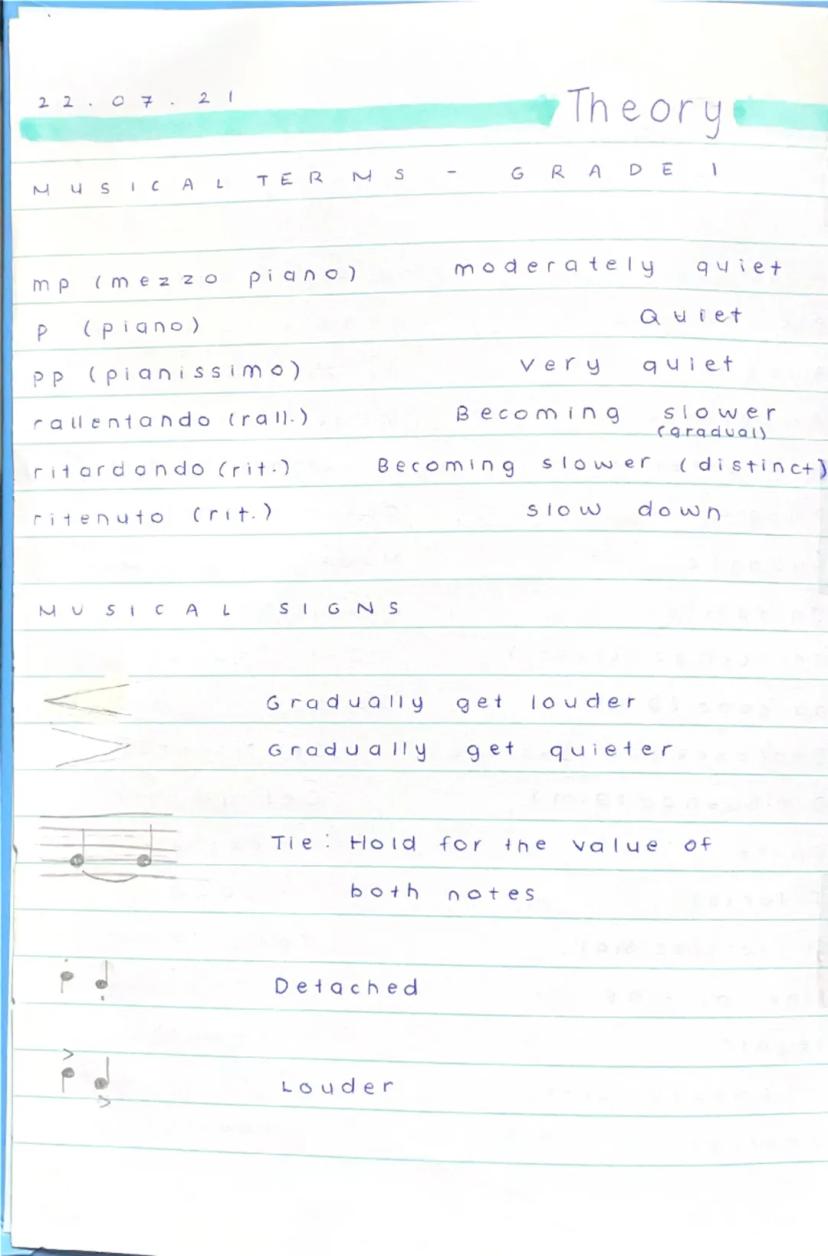 22.07.21 Theory
MUSICAL TERMS - GRADE 1
mp (mezzo piano) moderately quiet
p (piano) Quiet
pp (pianissimo) very quiet
rallentando (rall.) Becoming slower (gradual)
ritardando (rit.) Becoming slower (distinct)
ritenuto (rit.) slow down
MUSICAL SIGNS
Gradually get louder
Gradually get quieter
Tie: Hold for the value of
both notes
Detached
Louder